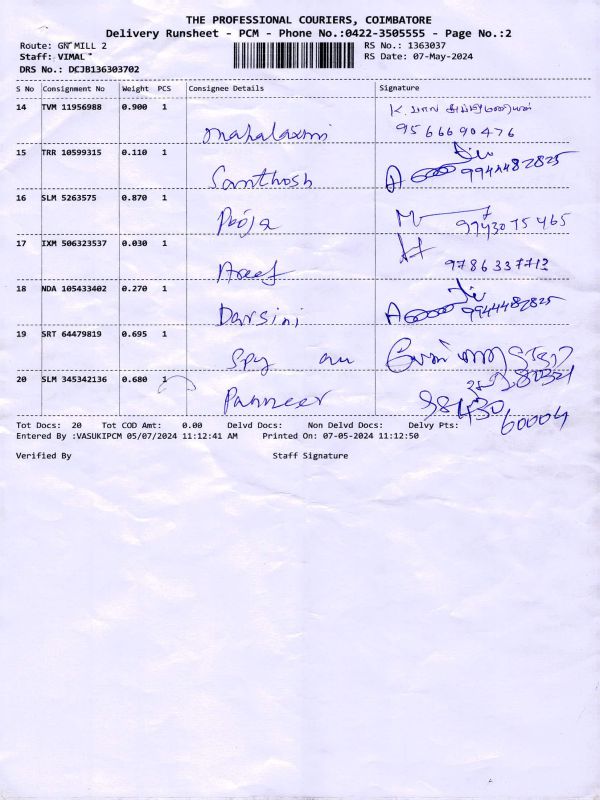 THE PROFESSIONAL COURIERS, COIMBATORE
Delivery Runsheet - PCM - Phone No.:0422-3505555 - Page No.:2
Route: GN MILL 2 RS No.: 1363037
Staff: VIMAL RS Date: 07-May-2024
DRS No.: DCJB136303702
S No Consignment No Weight PCS Consignee Details Signature
14 TVM 11956988 0.900 1
mahalaxmi 9566690476
15 TRR 10599315 0.110 1
Santhosh 9944482825
16 SLM 5263575 0.870 1
Pooja 9743075465
17 IXM 506323537 0.030 1
Areef 9786337713
18 NDA 105433402 0.270 1
Darsini 9944482825
19 SRT 64479819 0.695 1
Spy
20 SLM 345342136 0.680 1
Panneer 98430
60004
Tot Docs: 20 Tot COD Amt: 0.00 Delvd Docs: Non Delvd Docs: Delvy Pts:
Entered By :VASUKIPCM 05/07/2024 11:12:41 AM Printed On: 07-05-2024 11:12:50
Verified By Staff Signature